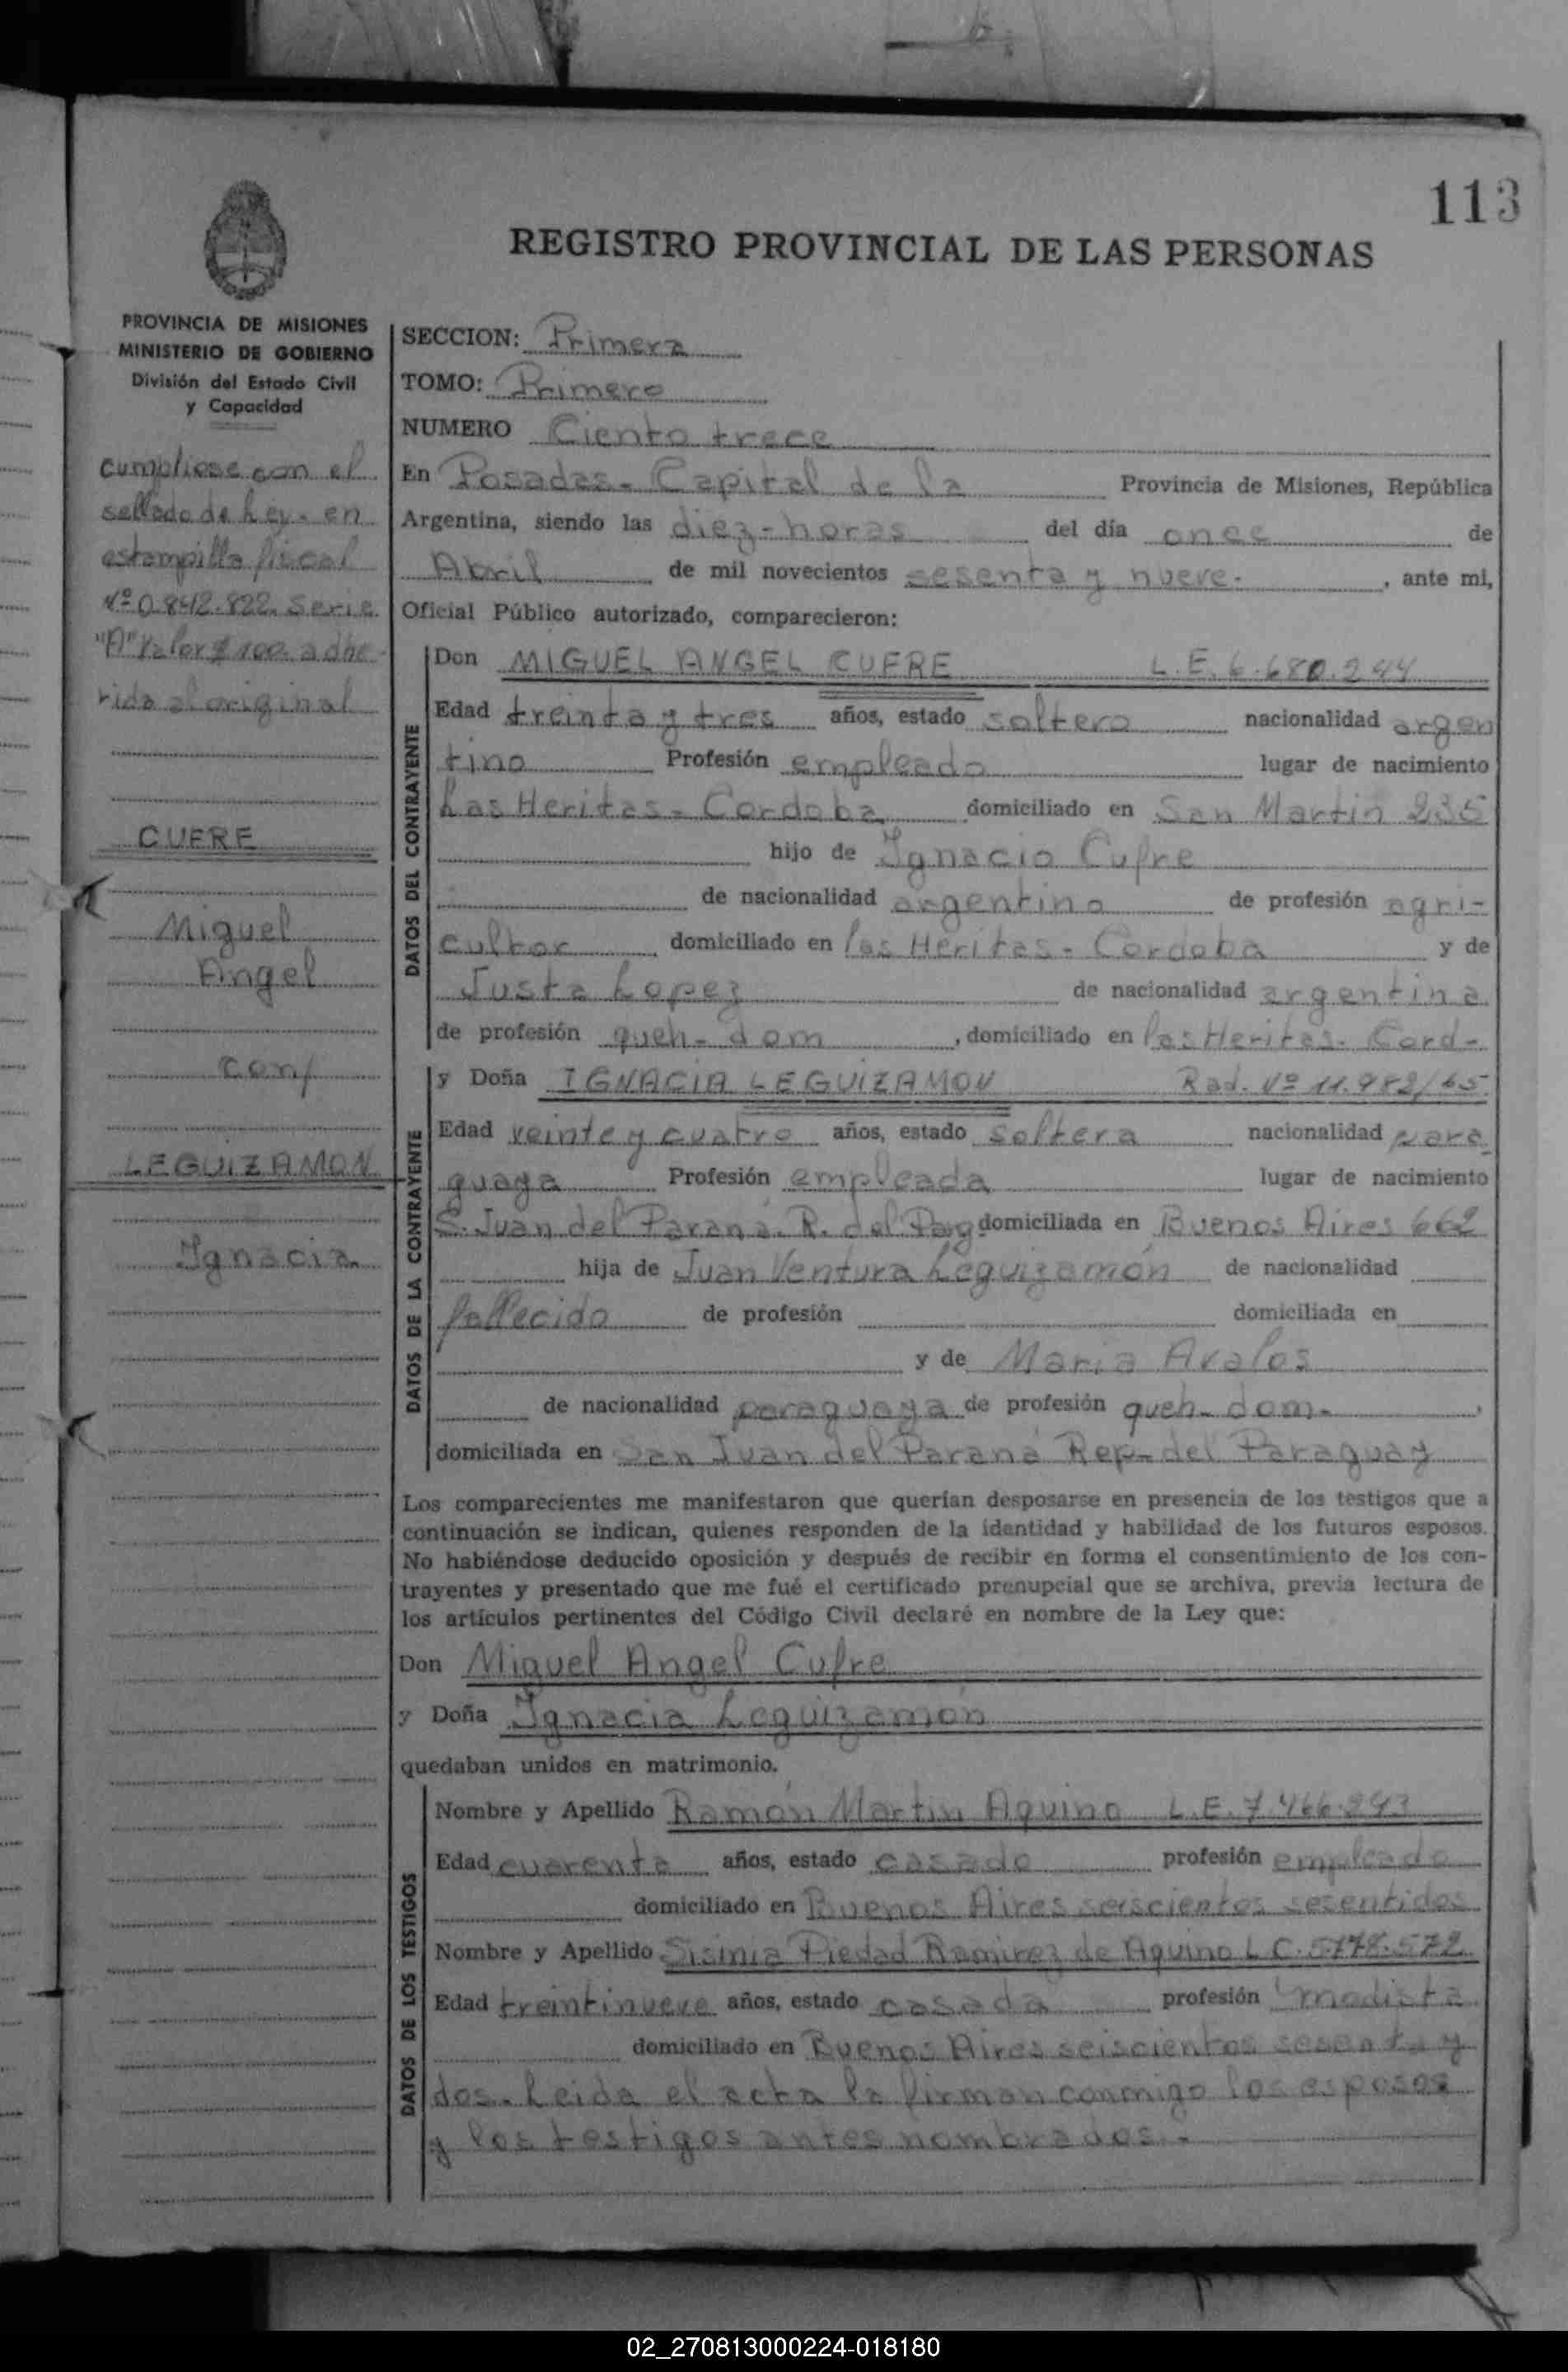 113
REGISTRO PROVINCIAL DE LAS PERSONAS
PROVINCIA DE MISIONES
MINISTERIO DE GOBIERNO
División del Estado Civil
y Capacidad
cumpliose con el
sellado de Ley. en
estampilla fiscal
Nº 0.842.822. Serie
"A" Valor $ 100. adhe-
rida al original
CUFRE
Miguel
Angel
con
LEGUIZAMON
Ignacia
SECCION: Primera
TOMO: Primero
NUMERO Ciento trece
En Posadas. Capital de la Provincia de Misiones, República
Argentina, siendo las diez-horas del día once de
Abril de mil novecientos sesenta y nueve. , ante mi,
Oficial Público autorizado, comparecieron:
DATOS DEL CONTRAYENTE
Don MIGUEL ANGEL CUFRE L.E. 6.680.244
Edad treinta y tres años, estado soltero nacionalidad argen
tino Profesión empleado lugar de nacimiento
Las Heritas - Cordoba domiciliado en San Martin 235
hijo de Ignacio Cufre
de nacionalidad argentino de profesión agri-
cultor domiciliado en las Heritas - Cordoba y de
Justa Lopez de nacionalidad argentina
de profesión queh- dom , domiciliado en las Heritas. Cord-
DATOS DE LA CONTRAYENTE
y Doña IGNACIA LEGUIZAMON Rad. Nº 11.982/65
Edad veinte y cuatro años, estado soltera nacionalidad para
guaya Profesión empleada lugar de nacimiento
S. Juan del Paraná. R. del Pag domiciliada en Buenos Aires 662
hija de Juan Ventura Leguizamón de nacionalidad
fallecido de profesión domiciliada en
y de Maria Avalos
de nacionalidad paraguaya de profesión queh- dom- ,
domiciliada en San Juan del Paraná Rep- del Paraguay
Los comparecientes me manifestaron que querían desposarse en presencia de los testigos que a
continuación se indican, quienes responden de la identidad y habilidad de los futuros esposos.
No habiéndose deducido oposición y después de recibir en forma el consentimiento de los con-
trayentes y presentado que me fué el certificado prenupcial que se archiva, previa lectura de
los artículos pertinentes del Código Civil declaré en nombre de la Ley que:
Don Miguel Angel Cufre
y Doña Ignacia Leguizamón
quedaban unidos en matrimonio.
DATOS DE LOS TESTIGOS
Nombre y Apellido Ramón Martin Aquino L.E. 7.466.293
Edad cuarenta años, estado casado profesión empleado
domiciliado en Buenos Aires seiscientos sesentidos
Nombre y Apellido Sisinia Piedad Ramirez de Aquino L.C. 5.178.572
Edad treintinueve años, estado casada profesión modista
domiciliado en Buenos Aires seiscientos sesenta y
dos. Leida el acta la firman conmigo los esposos
y los testigos antes nombrados.-
02_270813000224-018180